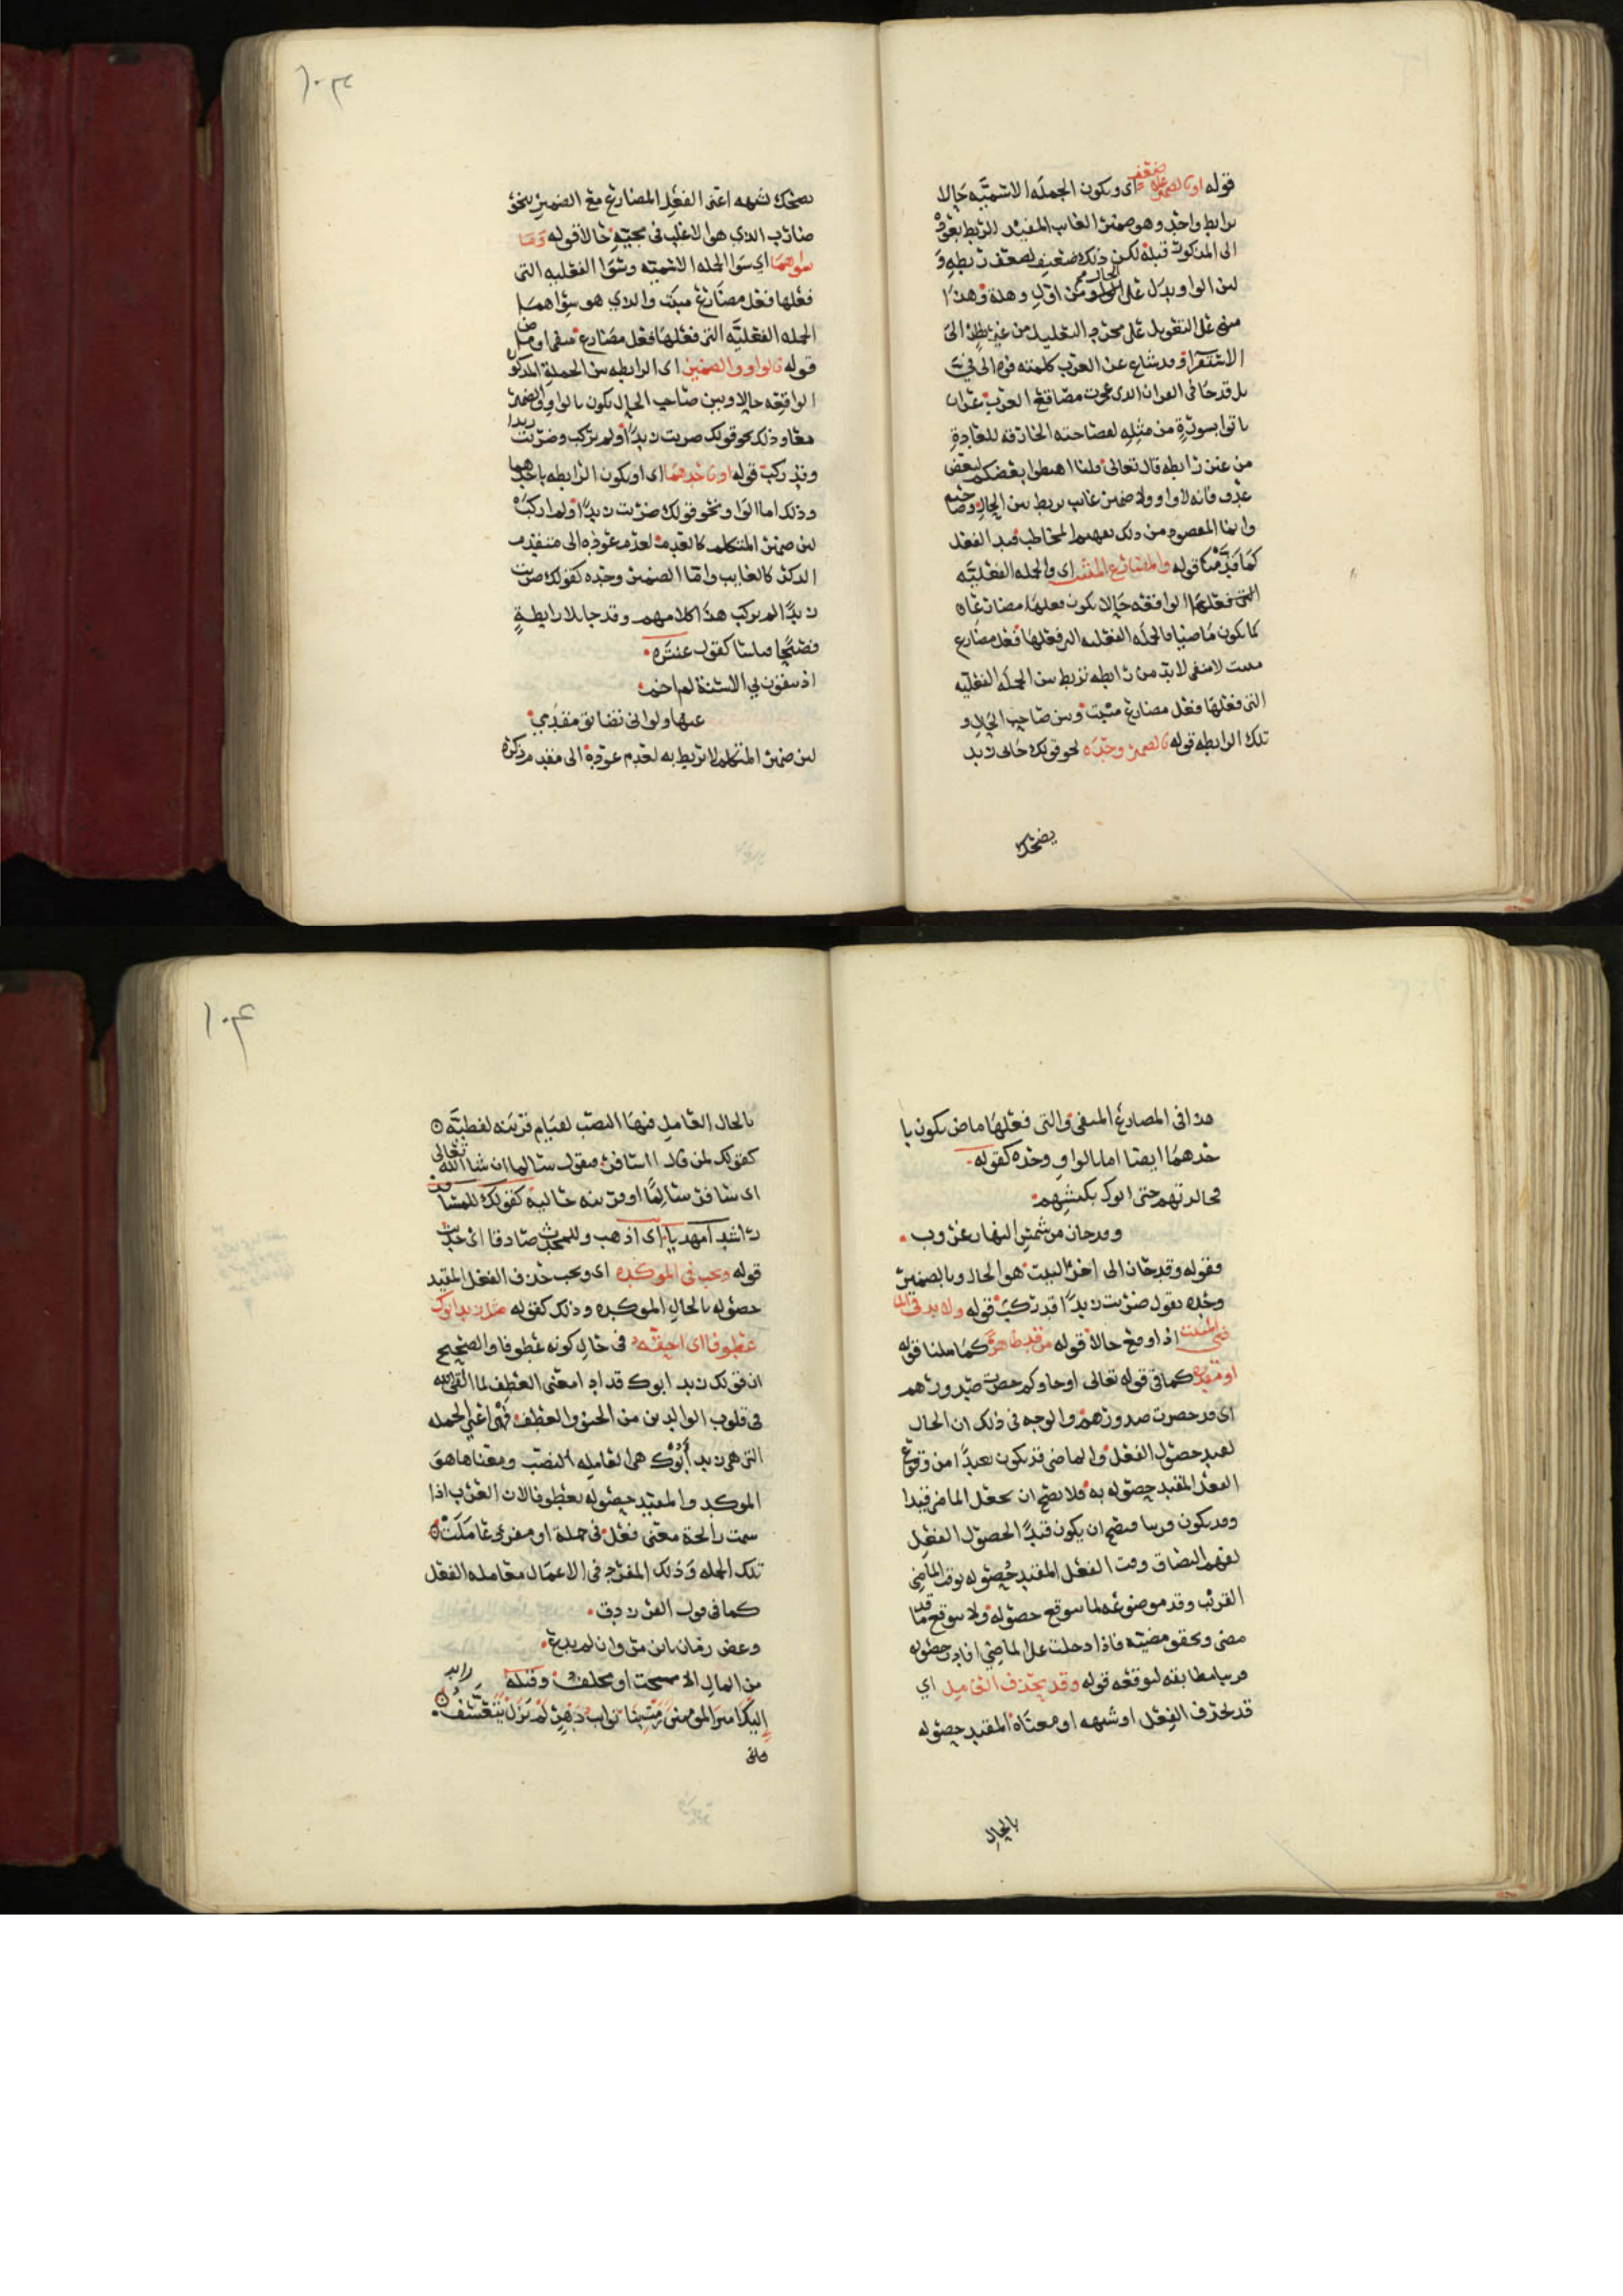 قوله او بالضمير على ضعف اى ويكون الجملة الاسمية حالا
برابط واحد وهو ضمير الغايب المفيد للربط بعوده
الى المذكور قبله لكن ذلك ضعيف لضعف ربطه و
لان الواو يدل على الحال من اول وهلة وهذا
مبنى على التعويل على مجرد التعليل من غير نظر الى
الاستقرا وقد شاع عن العرب كلمته فوه الى فىّ
بل قد جا فى القران الذى عجزت مصاقع العرب عن ان
ياتوا بسورة من مثله لفصاحته الخارقة للعادة
من غير رابطه قال تعالى قلنا اهبطوا بعضكم لبعض
عدو فانه لا واو ولا ضمير غايب يربط بين الحال وصاحبه
وانما المقصود من ذلك تفهيم المخاطب قيد الفعل
كما قدمنا قوله والمضارع المثبت اى والجملة الفعلية
التى فعلها الواقعة حالا يكون فعلها مضارعا
كما يكون ماضيا فالجملة الفعلية التى فعلها فعل مضارع
مثبت لا منفى لا بد من رابطه تربط بين الجملة الفعلية
التى فعلها فعل مضارع مثبت وبين صاحب الحال و
تلك الرابطه قوله بالضمير وحده نحو قولك جانى زيد
يضحك
١٠٣
يضحك لشبهه اعنى الفعل المضارع مع الضمير بنحو
ضارب الذى هو الاغلب فى مجيئه حالا قوله وما
سواهما اى سوا الجملة الاسمية وسوا الفعلية التى
فعلها فعل مضارع مثبت والذى هو سواهما
الجملة الفعلية التى فعلها فعل مضارع منفى او ماض
قوله بالواو والضمير اى الرابطه بين الجملة المذكورة
الواقعة حالا وبين صاحب الحال يكون بالواو والضمير
معا وذلك نحو قولك ضربت زيدا ولم يركب وضربت زيدا
وقد ركب قوله او باحدهما اى او يكون الرابطه باحدهما
وذلك اما الواو نحو قولك ضربت زيدا ولما اركب
لان ضمير المتكلم كالعدم لعدم عوده الى متقدم
الذكر كالغايب واما الضمير وحده كقولك ضربت
زيدا لم يركب هذا كلامهم وقد جا بلا رابطة
فصيحا قياسا كقول عنترة
اذ يتقون بى الاسنة لم اخم
عنها ولو انى تضايق مقدمى
لان ضمير المتكلم لا تربط به لعدم عوده الى متقدم ذكره
هذا فى المضارع المنفى والتى فعلها ماض يكون با
حدهما ايضا اما بالواو وحده كقوله
فجالدتهم حتى اتوك بكبشهم
وقد حان من شمس النهار غروب
فقوله وقد حان الى اخر البيت هو الحال وبالضمير
وحده تقول ضربت زيدا قد ركب قوله ولا بد فى الما
ضى المثبت اذا وقع حالا قوله من قد ظاهرة كما مثلنا قوله
او مقدرة كما فى قوله تعالى او جاوكم حصرت صدورهم
اى قد حصرت صدورهم والوجه فى ذلك ان الحال
لقيد حصول الفعل والماضى قد يكون بعيدا من وقوع
الفعل المقيد حصوله به فلا يصح ان يجعل الماضى قيدا
وقد يكون قريبا فيصح ان يكون قيدا لحصول الفعل
وقت الفعل المقيد حصوله بوقت الماضى
القريب وقد موضوعة لما يتوقع حصوله ولا يتوقع ما قد
مضى وتحقق مضيه فاذا دخلت على الماضى افادت حصوله
قريبا مطابقه لتوقعه قوله وقد يحذف العامل اي
قد يحذف الفعل او شبهه او معناه المقيد حصوله
بالحال
١٠٤
بالحال العامل فيها النصب لقيام قرينه لفظية
كقولك لمن قال ااسافر فيقول سالما ان شا الله تعالى
اى سافر سالما او قرينه حالية كقولك للمسافر
راشدا مهديا اى اذهب وللمحدث صادقا اى حدث
قوله ويجب فى الموكدة اى ويجب حذف الفعل المقيد
حصوله بالحال الموكدة وذلك كقوله مثل زيد ابوك
عطوفا اى احقه فى حال كونه عطوفا والصحيح
ان قولك زيد ابوك قد افاد معنى العطف لما القى الله
فى قلوب الوالدين من الحنو والعطف فهى اعنى الجملة
التى هى زيد أبوك هى العاملة النصب ومعناها هو
الموكد والمقيد حصوله بعطوفا لان العرب اذا
شمت رائحة معنى فعل فى جملة او مفرد عاملت
تلك الجملة وذلك المفرد فى الاعمال معاملة الفعل
كما فى قول الفرزدق
وعض زمان يا ابن مروان لم يدع
من المال الا مسحت او مجلف وقبله
إليك امير المومنين رمت بنا نوايب دهر لم تزل تتعسف